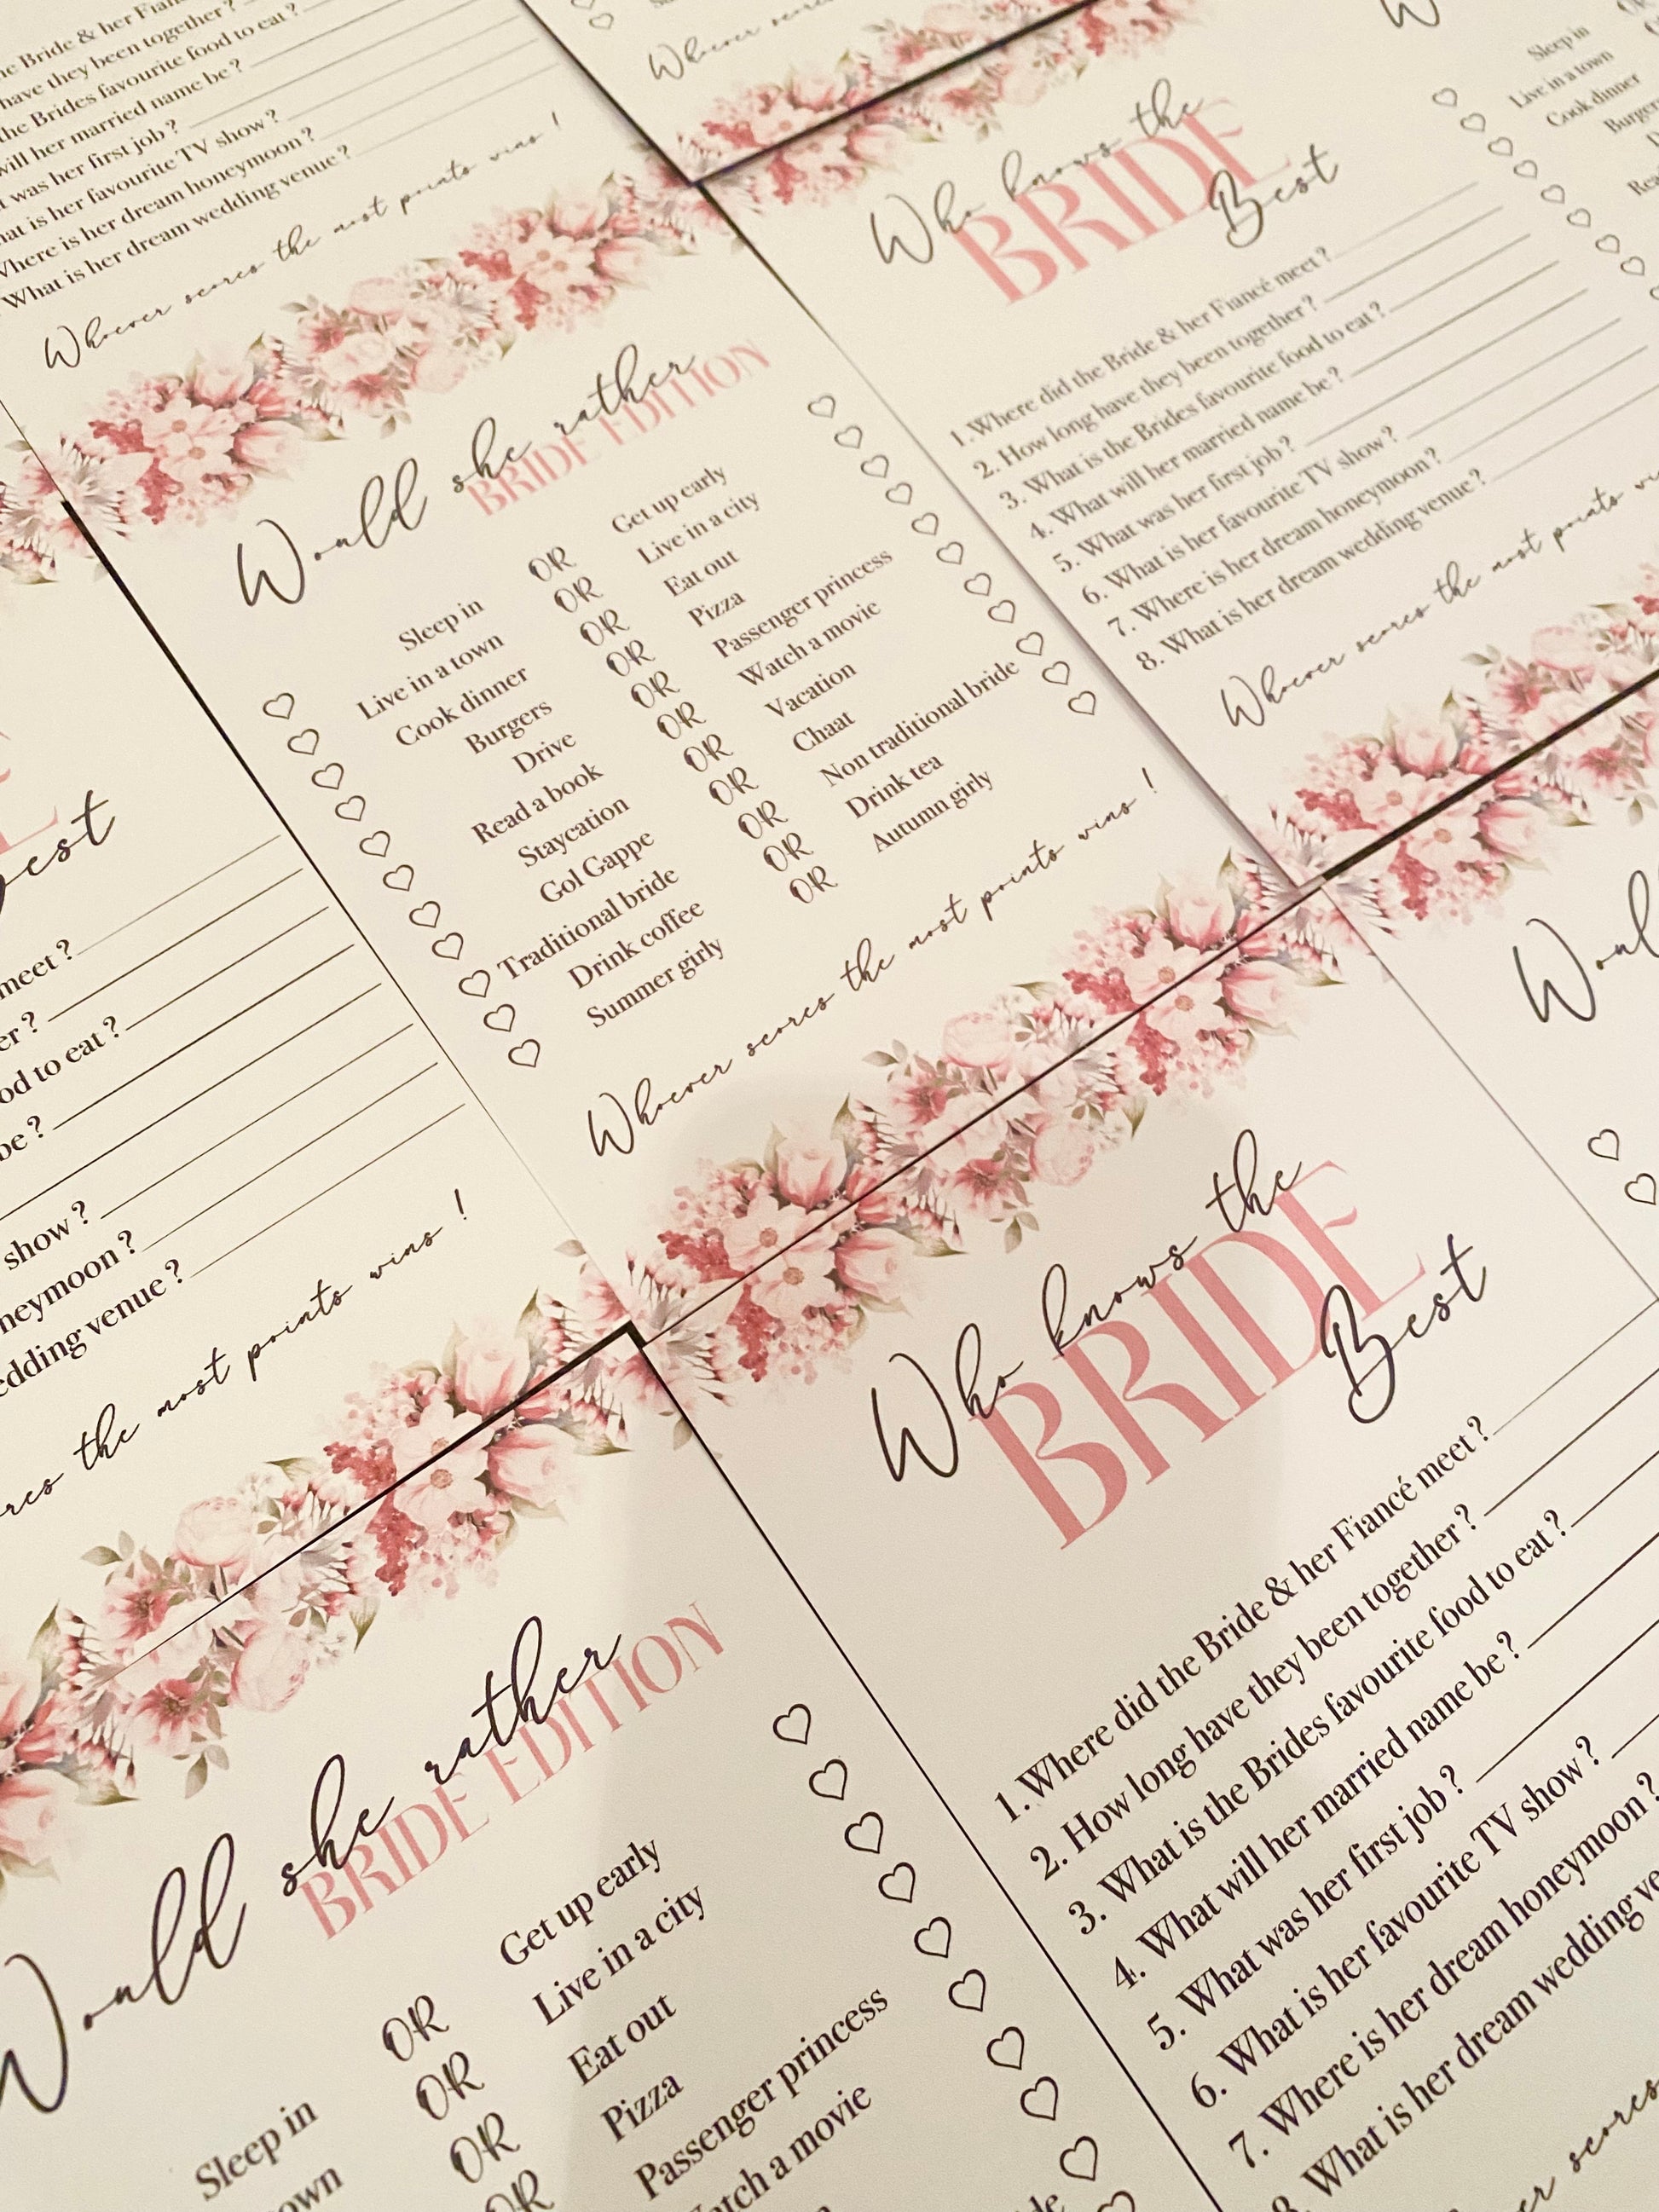 he Bride & her Fian
have they been together ?
the Brides favourite food to eat ?
will her married name be ?
was her first job ?
hat is her favourite TV show ?
Where is her dream honeymoon ?
What is her dream wedding venue ?
Whoever scores the most points wins !
Whoever scores
Who knows the
BRIDE
Best
1. Where did the Bride & her Fiancé meet ?
2. How long have they been together ?
3. What is the Brides favourite food to eat ?
4. What will her married name be ?
5. What was her first job ?
6. What is her favourite TV show ?
7. Where is her dream honeymoon ?
8. What is her dream wedding venue ?
Whoever scores the most points
W
Sleep in
Live in a town
Cook dinner
Burgers
Would she rather
BRIDE EDITION
Sleep in OR Get up early
Live in a town OR Live in a city
Cook dinner OR Eat out
Burgers OR Pizza
Drive OR Passenger princess
Read a book OR Watch a movie
Staycation OR Vacation
Gol Gappe OR Chaat
Traditional bride OR Non traditional bride
Drink coffee OR Drink tea
Summer girly OR Autumn girly
Whoever scores the most points wins !
est
meet ?
er ?
od to eat ?
be ?
show ?
neymoon ?
edding venue ?
res the most points wins !
Woul
Who knows the
BRIDE
Best
1. Where did the Bride & her Fiancé meet ?
2. How long have they been together ?
3. What is the Brides favourite food to eat ?
4. What will her married name be ?
5. What was her first job ?
6. What is her favourite TV show ?
7. Where is her dream honeymoon ?
8. What is her dream wedding ve
er scores
Would she rather
BRIDE EDITION
Sleep in OR Get up early
own OR Live in a city
OR Eat out
OR Pizza
Passenger princess
atch a movie